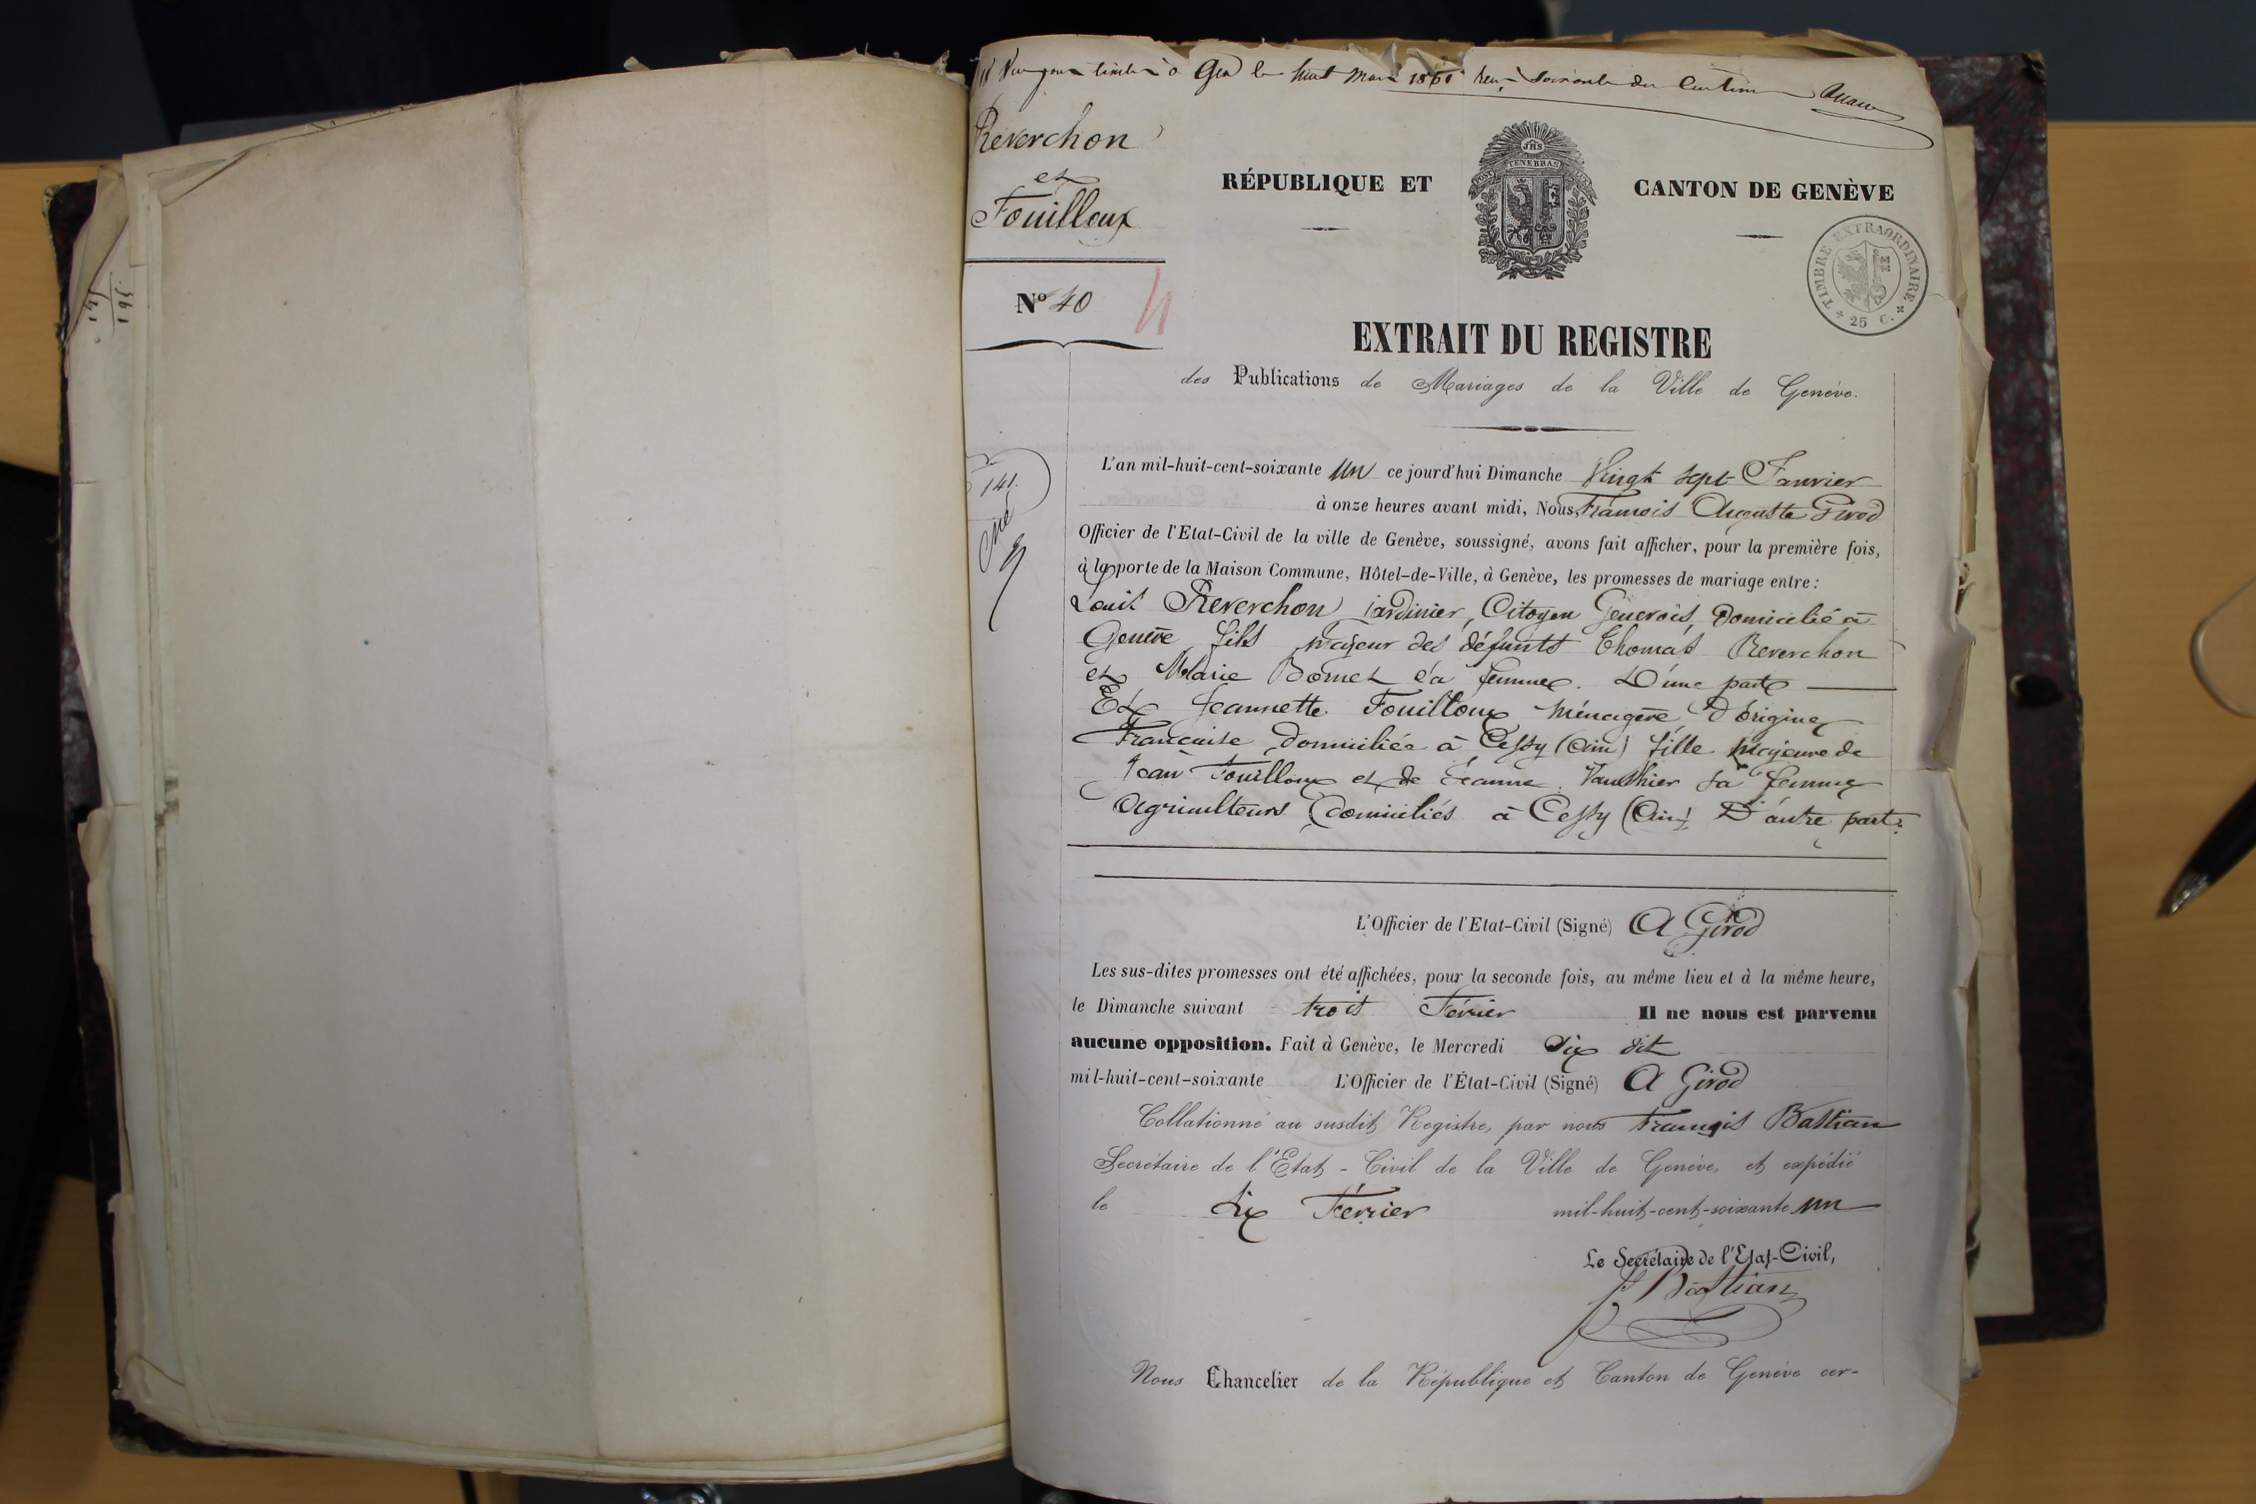 Vu pour timbre à Gex le huit Mars 1861 reçu soixante dix Centimes
Reverchon
et
Fouilloux
RÉPUBLIQUE ET CANTON DE GENÈVE
JHS
POST TENEBRAS
TIMBRE EXTRAORDINAIRE
25 C.
Nº 40
EXTRAIT DU REGISTRE
des Publications de Mariages de la Ville de Genève.
141.
L'an mil-huit-cent-soixante un ce jourd'hui Dimanche Vingt sept Janvier
à onze heures avant midi, Nous, François Auguste Girod
Officier de l'Etat-Civil de la ville de Genève, soussigné, avons fait afficher, pour la première fois,
à la porte de la Maison Commune, Hôtel-de-Ville, à Genève, les promesses de mariage entre:
Louis Reverchon jardinier, Citoyen Genevois, Domicilié à
Genève fils majeur des défunts Thomas Reverchon
et Marie Bornet sa femme. D'une part
Et Jeannette Fouilloux Ménagère, d'origine
Française domiciliée à Cessy (Ain) fille majeure de
Jean Fouilloux et de Jeanne Vauthier sa femme
Agriculteurs domiciliés à Cessy (Ain) D'autre part.
L'Officier de l'Etat-Civil (Signé) A Girod
Les sus-dites promesses ont été affichées, pour la seconde fois, au même lieu et à la même heure,
le Dimanche suivant trois Février Il ne nous est parvenu
aucune opposition. Fait à Genève, le Mercredi Six dit
mil-huit-cent-soixante L'Officier de l'État-Civil (Signé) A Girod
Collationné au susdit Registre, par nous François Bastian
Secrétaire de l'Etat-Civil de la Ville de Genève, et expédié
le Six Février mil-huit-cent-soixante un
Le Secrétaire de l'Etat-Civil,
F Bastian
Nous Chancelier de la République et Canton de Genève cer-